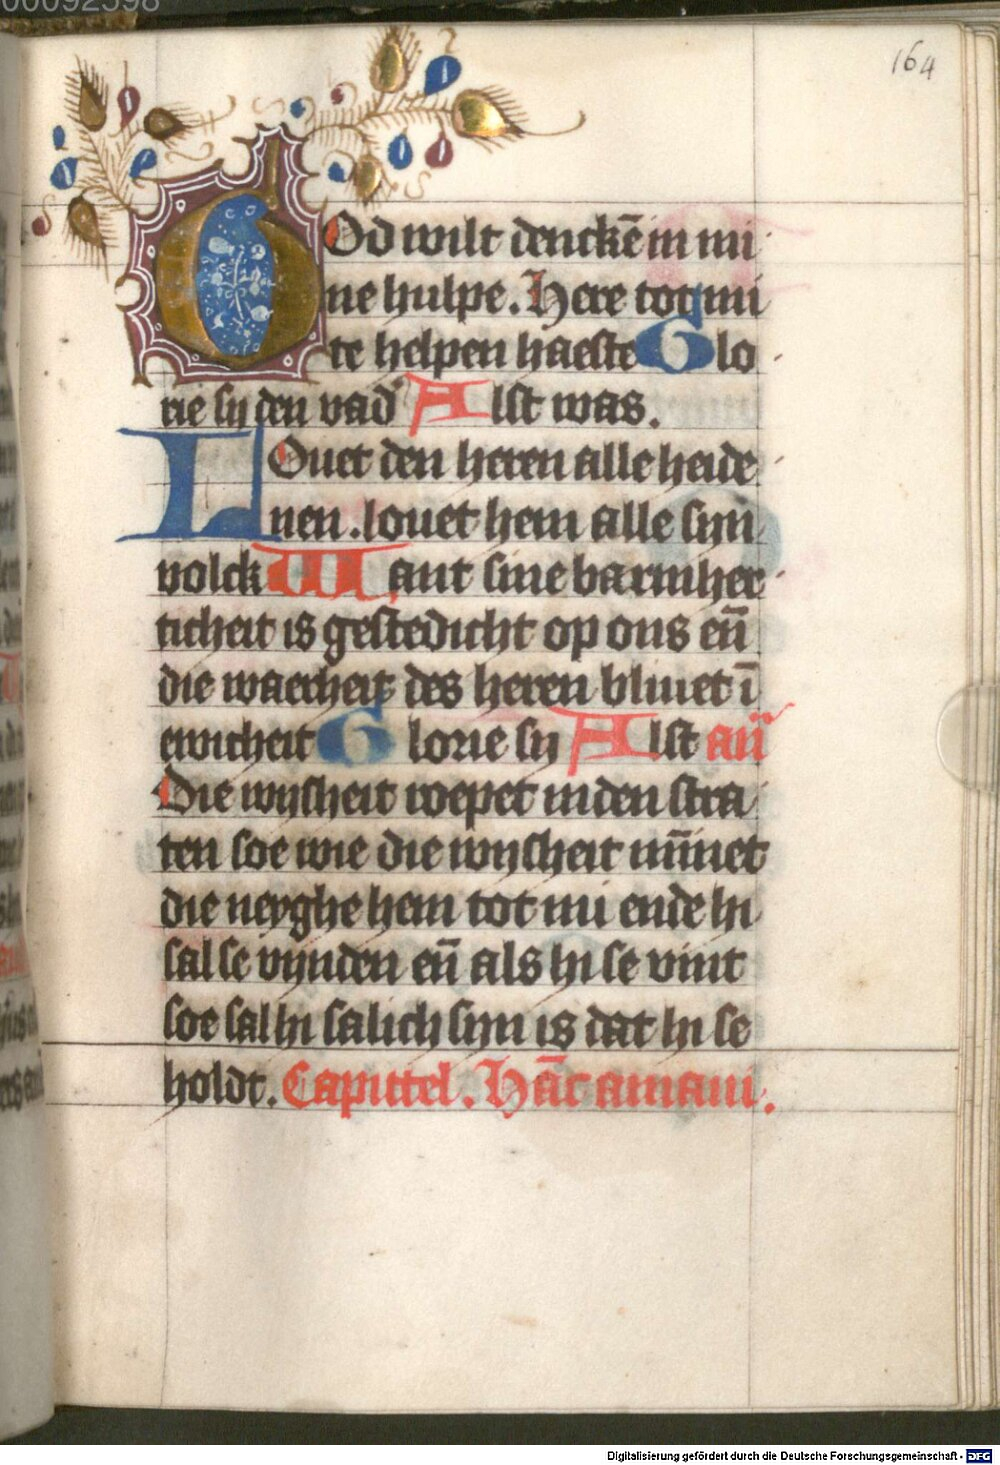 00092598
164
God wilt denckē in mi
ne hulpe. Here tot mi
te helpen haeste Glo
rie sy den vad' Alst was.
Louet den heren alle heide
nen. louet hem alle syn
volck Want sine barmher
ticheit is gestedicht op ons eñ
die waerheit des heren blivet ī
ewicheit Glorie sy Alst añ
Die wysheit roepet in den stra
ten soe wie die wysheit mīnet
die neyghe hem tot mi ende hi
sal se vynden eñ als hi se vint
soe sal hi salich syn is dat hi se
holdt. Capittel. Hāc amaui.
Digitalisierung gefördert durch die Deutsche Forschungsgemeinschaft - DFG